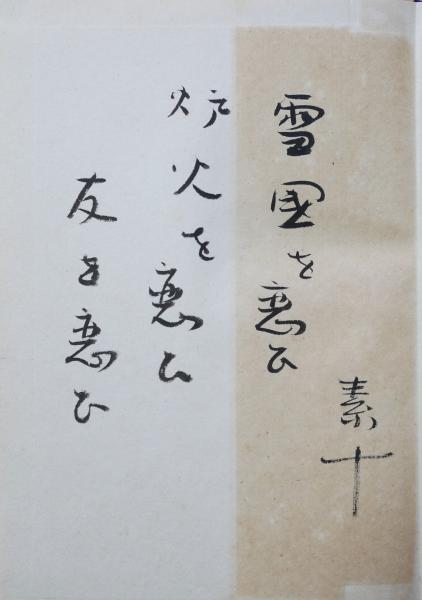 雪國を恋ひ
炉火を恋ひ
友を恋ひ
素十